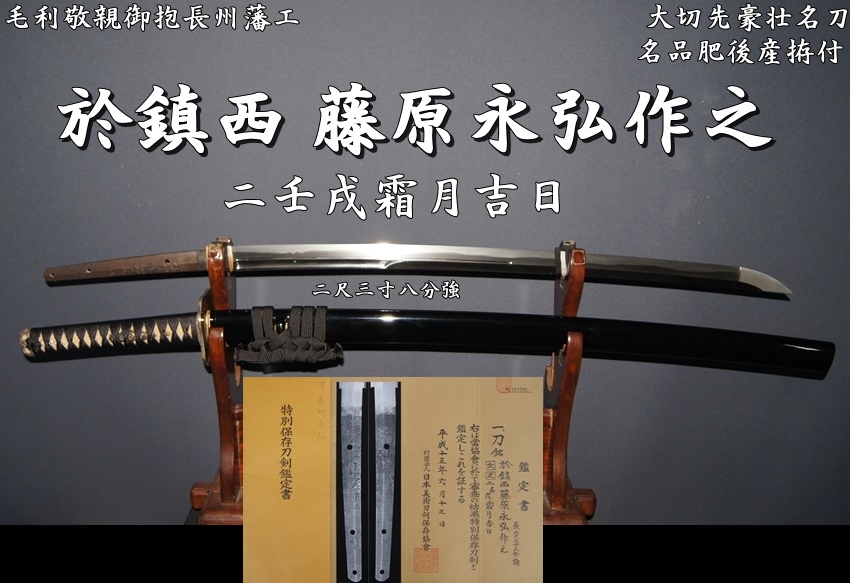 毛利敬親御抱長州藩工
大切先豪壮名刀
名品肥後産拵付
於鎮西 藤原永弘作之
二壬戌霜月吉日
二尺三寸八分強
特別保存刀剣鑑定書
鑑定書
一、刀 銘 於鎮西藤原永弘作之
二壬戌霜月吉日
長さ二尺三寸八分強
右は当協会に於て審査の結果特別保存刀剣と
鑑定しこれを証する
平成十五年六月十三日
財団法人日本美術刀剣保存協會